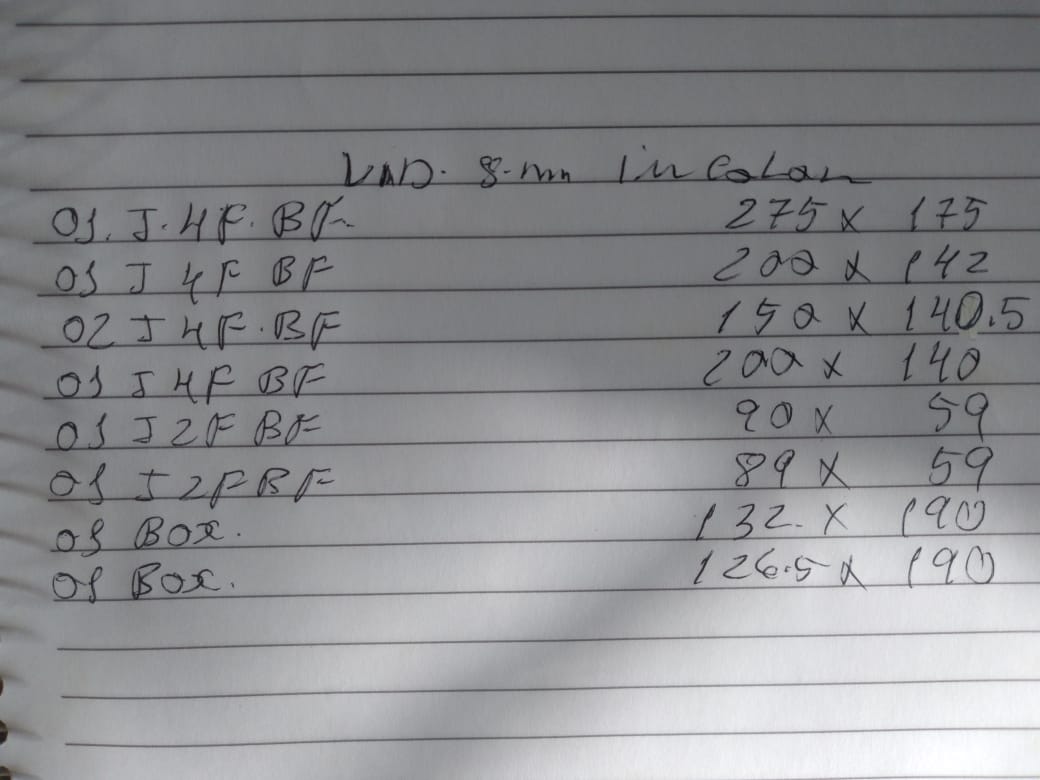 VND. 8-mm Incolor
01. J. 4F. BF. 275 x 175
01 J 4F BF 200 x 142
02 J 4F. BF 150 x 140.5
01 J 4F BF 200 x 140
01 J 2F BF 90 x 59
01 J 2F BF 89 x 59
01 BOX. 132. x 190
01 BOX. 126.5 x 190